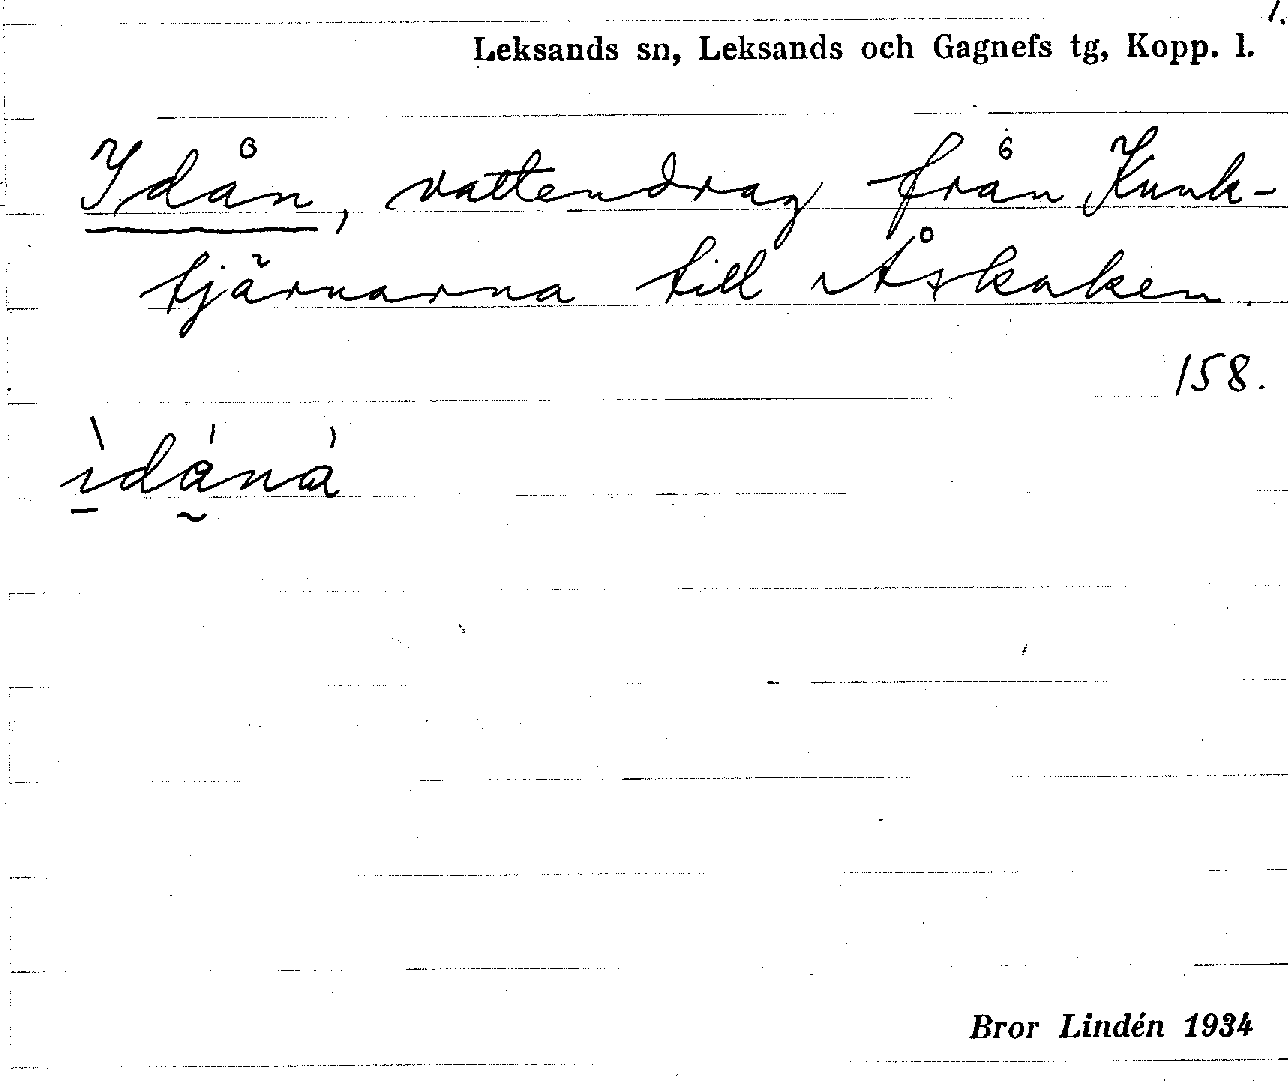 1.
Leksands sn, Leksands och Gagnefs tg, Kopp. l.
Idån, vattendrag från Kunk-
tjärnarna till Åskaken.
158.
ìdånå
Bror Lindén 1934